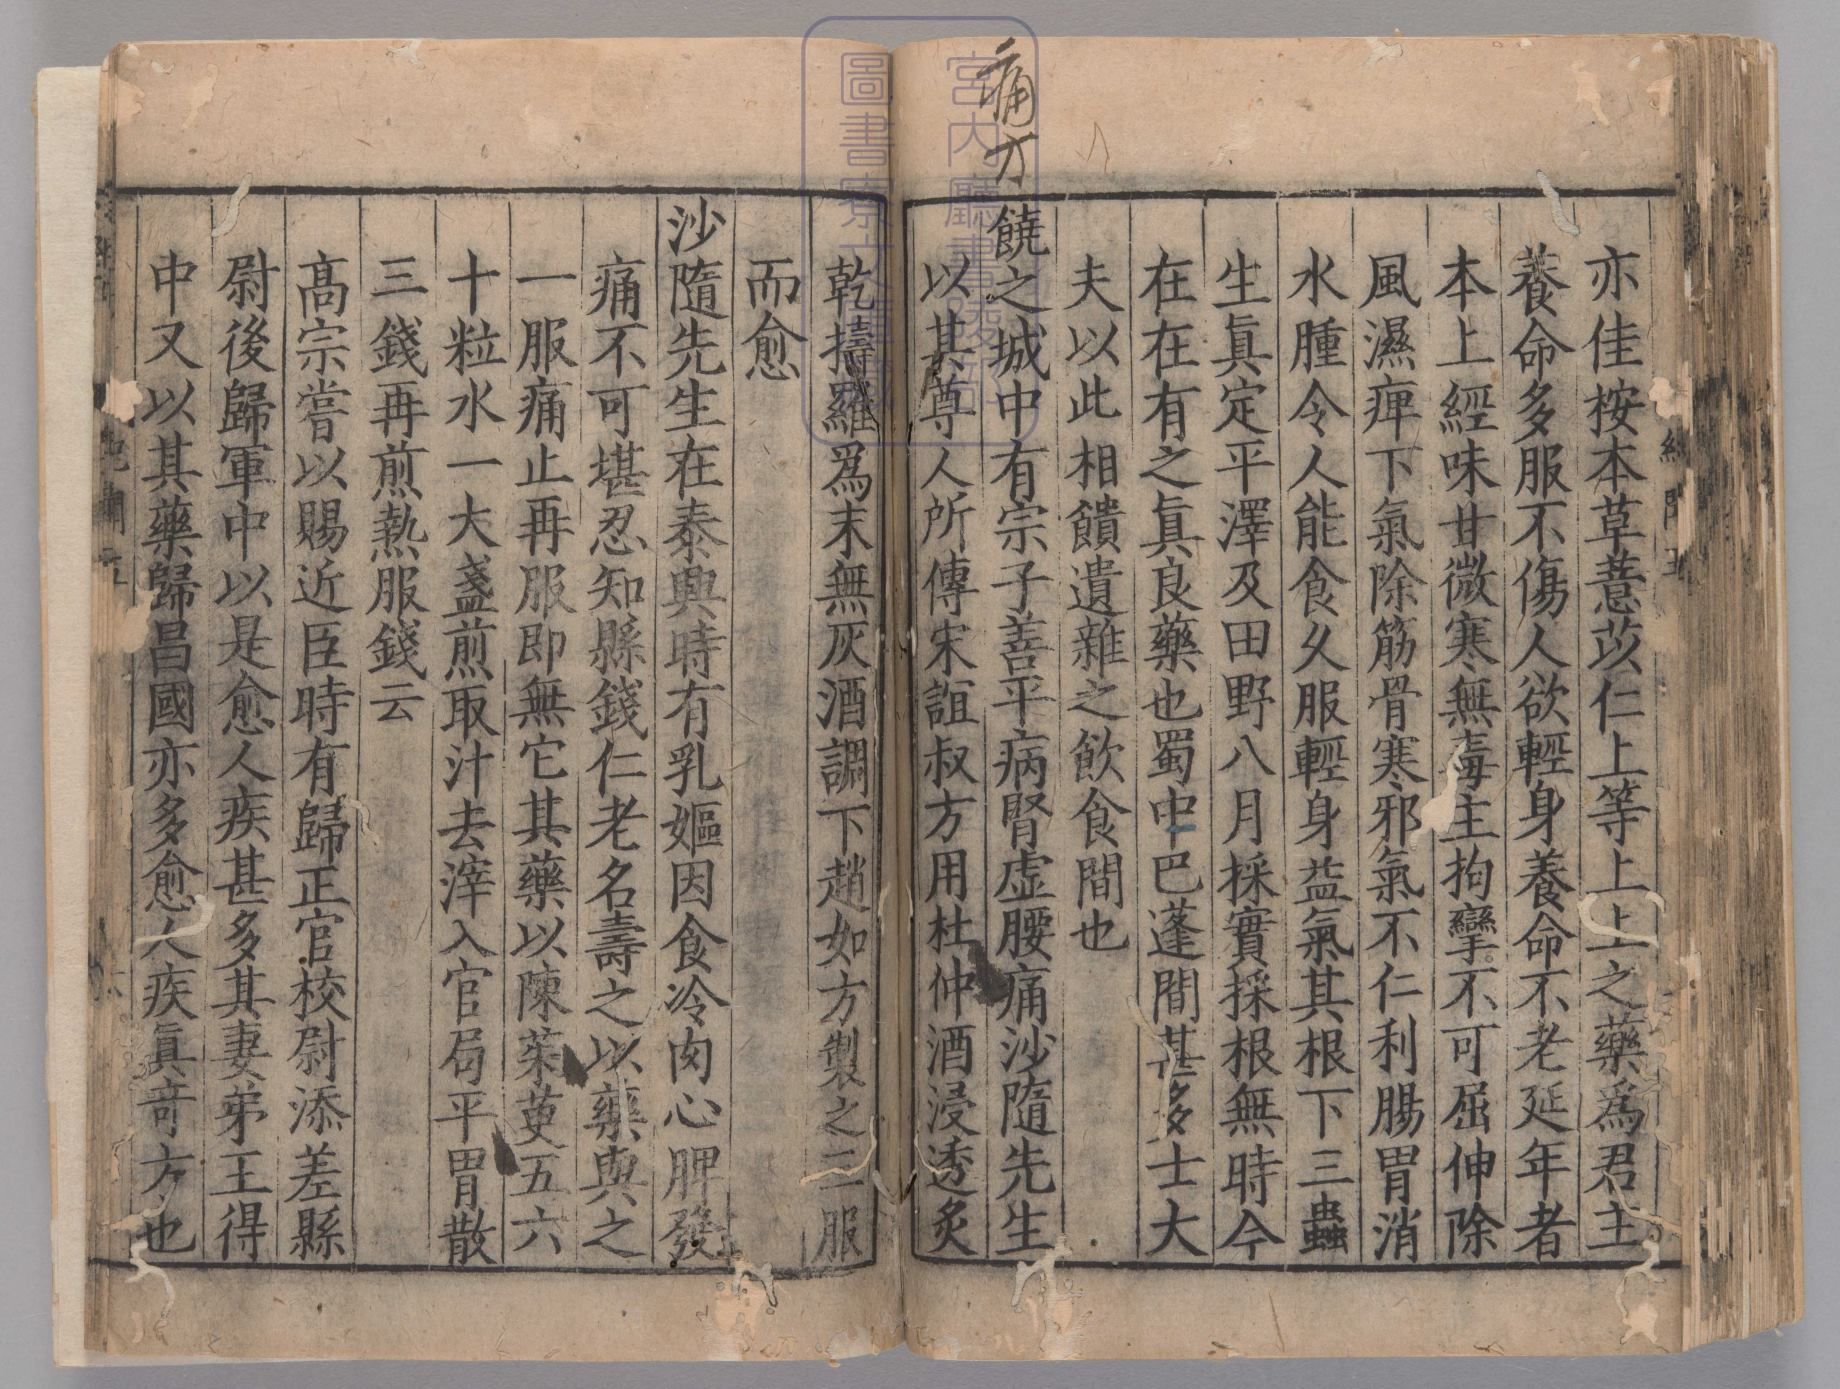 痛方
亦佳按本草薏苡仁上等上上之藥爲君主
養命多服不傷人欲輕身養命不老延年者
本上經味甘微寒無毒主拘攣不可屈伸除
風濕痺下氣除筋骨寒邪氣不仁利腸胃消
水腫令人能食久服輕身益氣其根下三蟲
生眞定平澤及田野八月採實採根無時今
在在有之眞良藥也蜀中巴蓬間甚多士大
夫以此相饋遺雜之飲食間也
饒之城中有宗子善平病腎虛腰痛沙隨先生
以其尊人所傳宋誼叔方用杜仲酒浸透炙
乾擣羅爲末無灰酒調下趙如方製之三服
而愈
沙隨先生在泰興時有乳嫗因食冷肉心脾發
痛不可堪忍知縣錢仁老名壽之以藥與之
一服痛止再服即無它其藥以陳茱萸五六
十粒水一大盞煎取汁去滓入官局平胃散
三錢再煎熱服錢云
高宗嘗以賜近臣時有歸正官校尉添差縣
尉後歸軍中以是愈人疾甚多其妻弟王得
中又以其藥歸昌國亦多愈人疾眞奇方也
宮内廳書陵部
圖書寮文庫